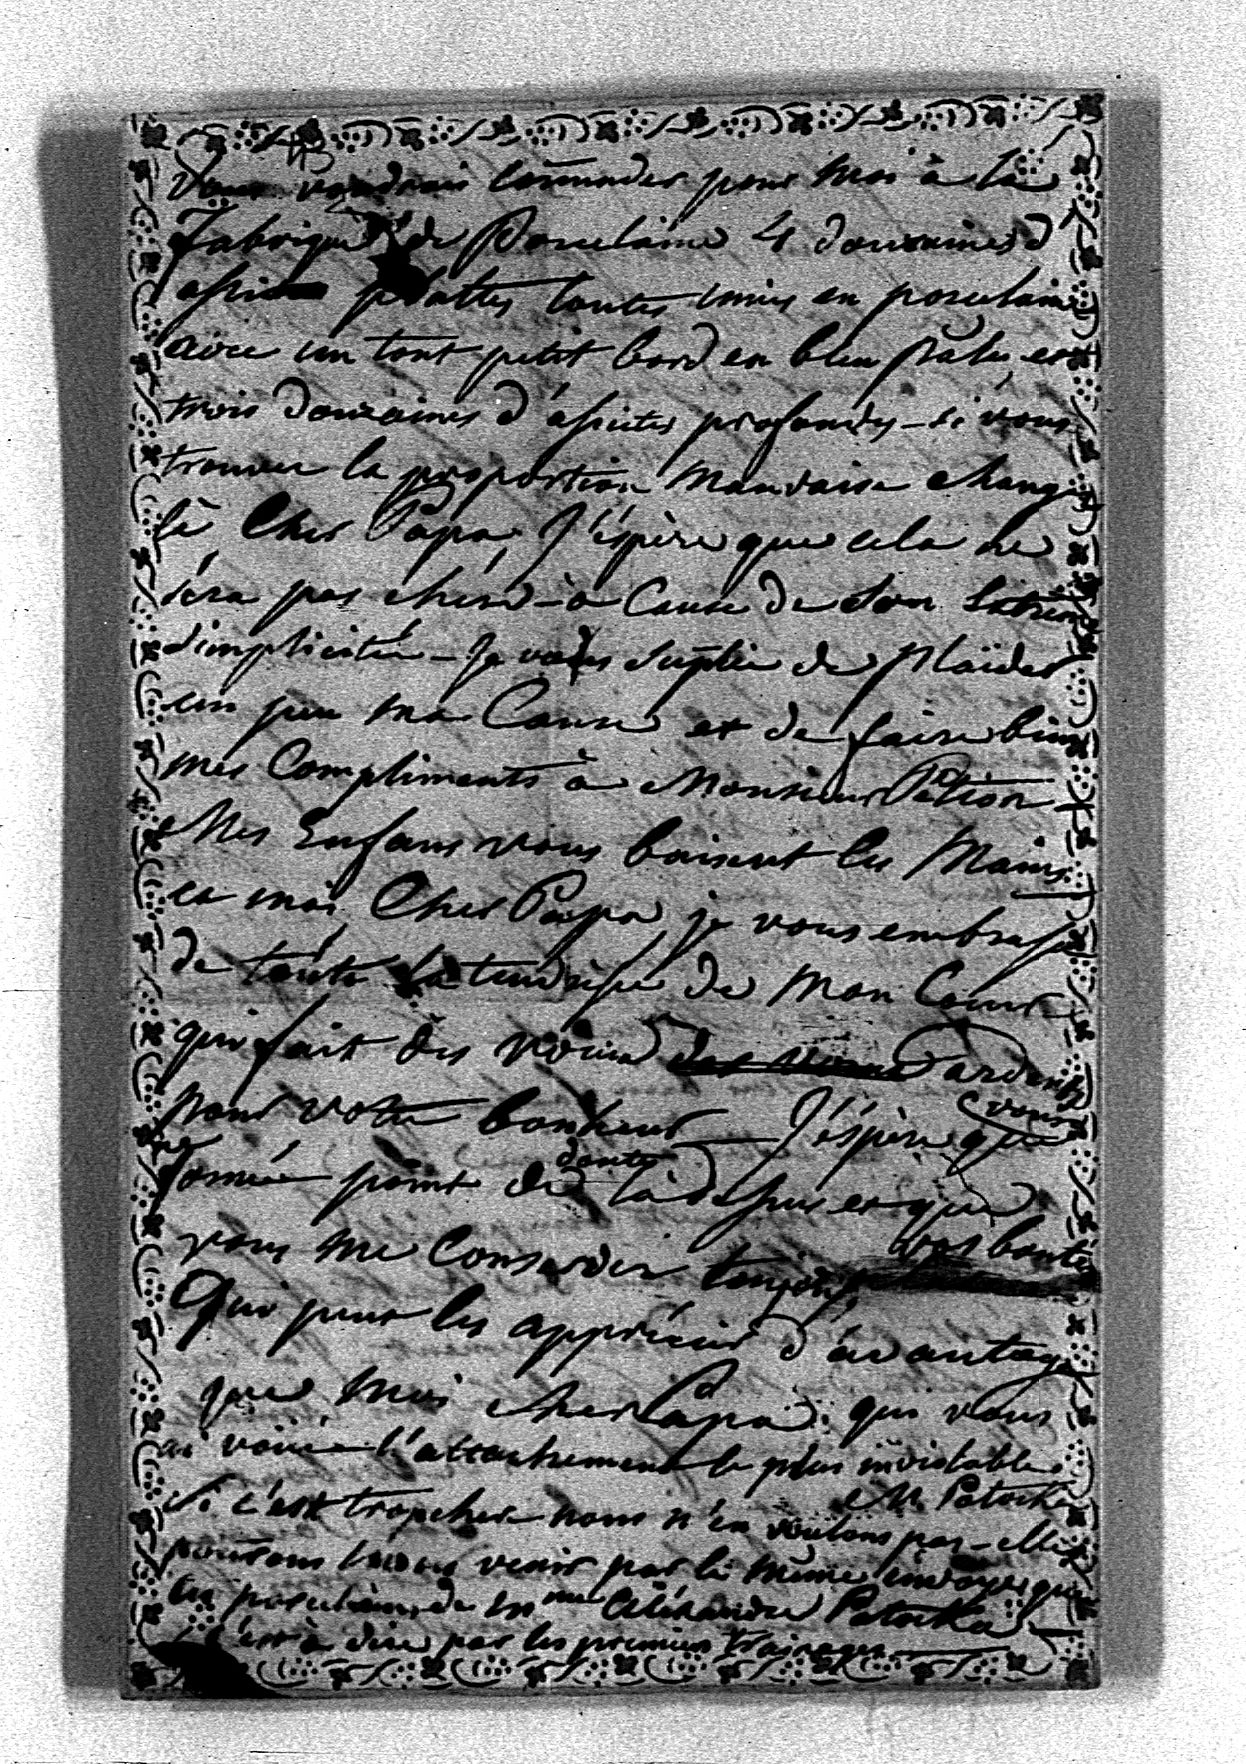 Vous voudrais comander pour moi à la
Fabrique de Porcelaine 4 douzaines d'
assiettes plattes toutes unies en porcelaine
avec un tout petit bord en bleu pale, et
trois douzaines d'assiettes profondes - si vous
trouvez la proportion mauvaise changé
là Cher Papa J'éspère que cela ne
séra pas chère - à Cause de son
simplicitée - Je vous suplie de plaïder
un peu ma Cause et de faire bien
mes Compliments à Monsieur Pétion -
Mes Enfans vous baisent les Mains.
et moi Cher Papa je vous embrasse
de toute la tendrésse de Mon Coeur
qui fait dés voeux ardents
pour votre bonheur - J'éspère que vous
formée point de doute la déssus et que
vous me Conservéz toujours vos bontés
Qui peut les apprécier d'avantage
que moi cher Papa qui vous
ai vouée l'attachement le plus inviolable
M. Potocka
Si c'est trop cher nous n'en voulons pas - elles
pourons venir par le même envoye que
la porcelaine de Mme Aléxandre Potocka -
c'est à dire par les premiers trainages